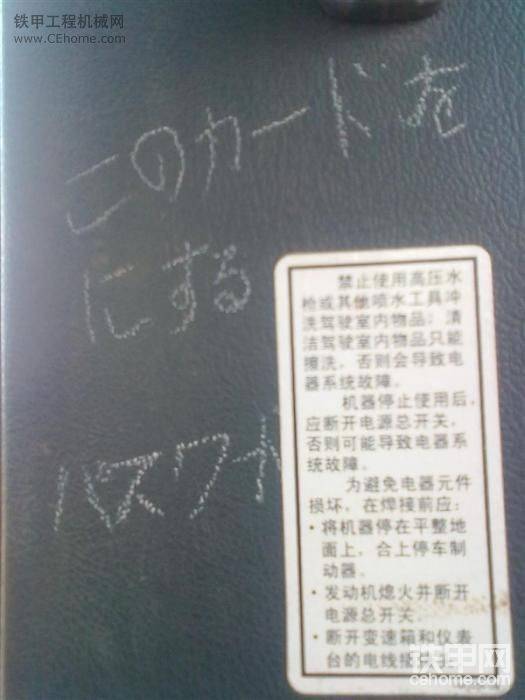 铁甲工程机械网
www.CEhome.com
このカードを
にする
パスワ
禁止使用高压水
枪或其他喷水工具冲
洗驾驶室内物品；清
洁驾驶室内物品只能
擦洗，否则会导致电
器系统故障。
机器停止使用后，
应断开电源总开关，
否则可能导致电器系
统故障。
为避免电器元件
损坏，在焊接前应：
·将机器停在平整地
面上，合上停车制
动器。
·发动机熄火并断开
电源总开关.
·断开变速箱和仪表
台的电线
铁甲网
cehome.com